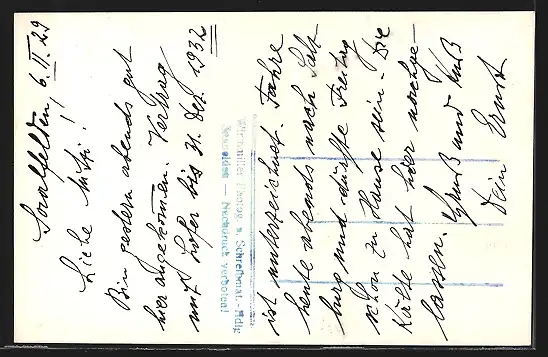 Saalfelden, 6. II. 29
Liebe Mutti!
Bin gestern abends gut
hier angekommen. Vertrag
mit Hofer bis 31. Dez. 1932
ist unterzeichnet. Fahre
heute abends nach Salz
burg und dürfte Freitag
schon zu Hause sein. Die
Kälte hat hier nachge-
lassen. Gruß und Kuß
Dein Ernst
Saalfelden — Nachdruck verboten!